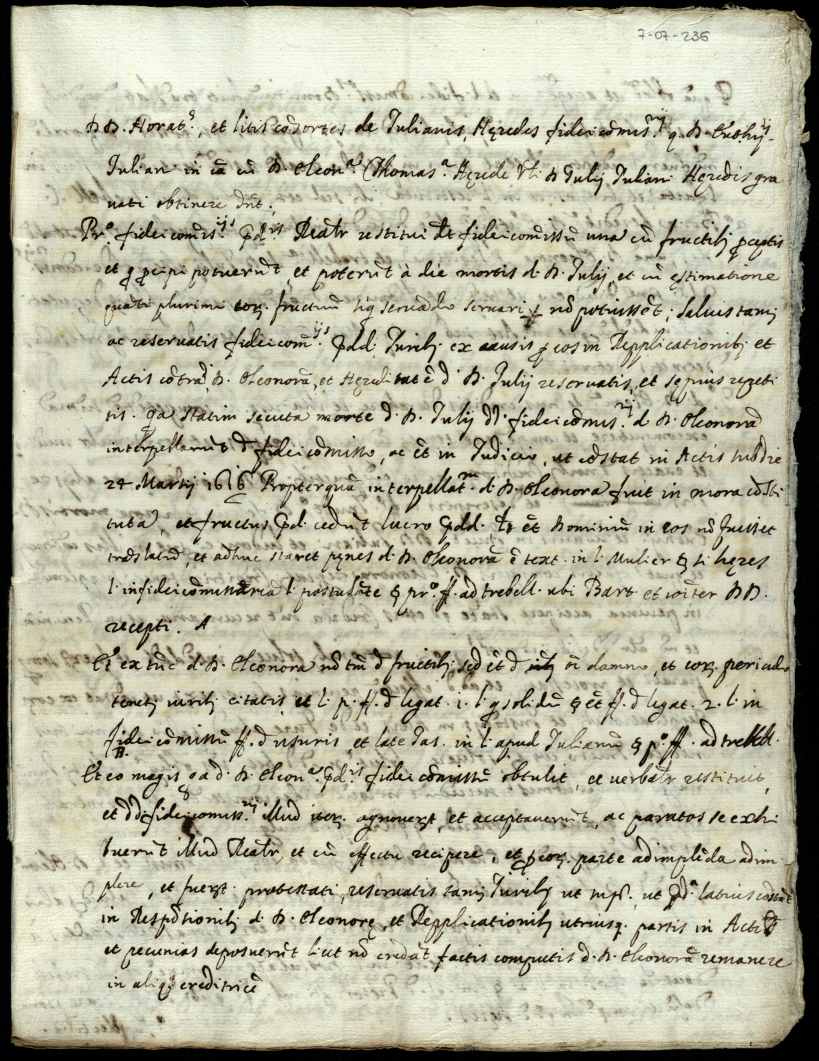 7-07-236
D. D. Horat.s, et litis cōsortes de Iulianis, Hęredes fideicōmis.rij q. D.
Iuliani in cā cū D. Eleon.a Thomas.a Hęrede D Iulij Iuliani Hęredis gra
uati obtinere dnt.
Pr.o fideicōmis.ijs pd.is Realr restitui det fideicōmissū una cū fructibȝ pceptis
et q pcipi potuerūt, et poterūt à die mortis d. D. Iulij, et cū ęstimatione
quāti plurimi eorȝ fructuum seruādo seruari nō potuissēt; saluis tamȝ
ac reseruatis fideicom.ijs pdd. Iuribȝ ex causis p eos in Repplicationibȝ et
Actis cōtra D. Eleonorā, et Hęreditatē d. D. Iulij reseruatis, et sępius repeti
tis. qa statim secuta morte d. D. Iulij dd. fideicōmis.rij d. D. Eleonorā
interpellarūt d fideicōmisso, ac ēt in Iudicio, ut cōstat in Actis sub die
24 Martij 1616 Propterquā interpellat.m d. D. Eleonora fuit in mora cōsti
tuta, et fructus pd. cedūt lucro pdd. ēt Dominiū in eos nō fuisset
trāslatū, et adhuc staret pęnes d. D. Eleonorā ē text. in l. Mulier § si hęres
l. in fideicōmissaria l. postulāte § pr.o ff. ad trebell. ubi Bart. et cōiter DD.
recepti. A
Et ex tūc d. D. Eleonora nō tm d fructibȝ sed ēt d oī damno, et eorȝ periculo
tenetȝ iuribȝ citatis, et l. p. ff. d legat. 1. l. q solidū § ēt ff. d legat. 2. l. in
fideicōmissū ff. d usuris, et late Ias. in l. apud Iulianū § p.o ff. ad trebell.
B.
Et eo magis qa d. D. Eleon.a pd.is fideicōmissū obtulit, et verbalr restituit,
et dd. fideicomiss.rij illud agnouerūt, et acceptauerūt, ac paratos se exhi
buerūt illud Realr, et cū effectu recipere, et p eorȝ parte adimplēda adim-
plere, et fuerūt protestati, reseruatis tamȝ Iuribȝ ut sup.a, ut pd.a latius cōstāt
in Respōtionibȝ d. D. Eleonorę, et Repplicationibȝ utriusqȝ partis in Actis
et pecunias deposuerūt l.et nō credāt factis computis d. D. Eleonorā remanere
in aliq.o creditricē